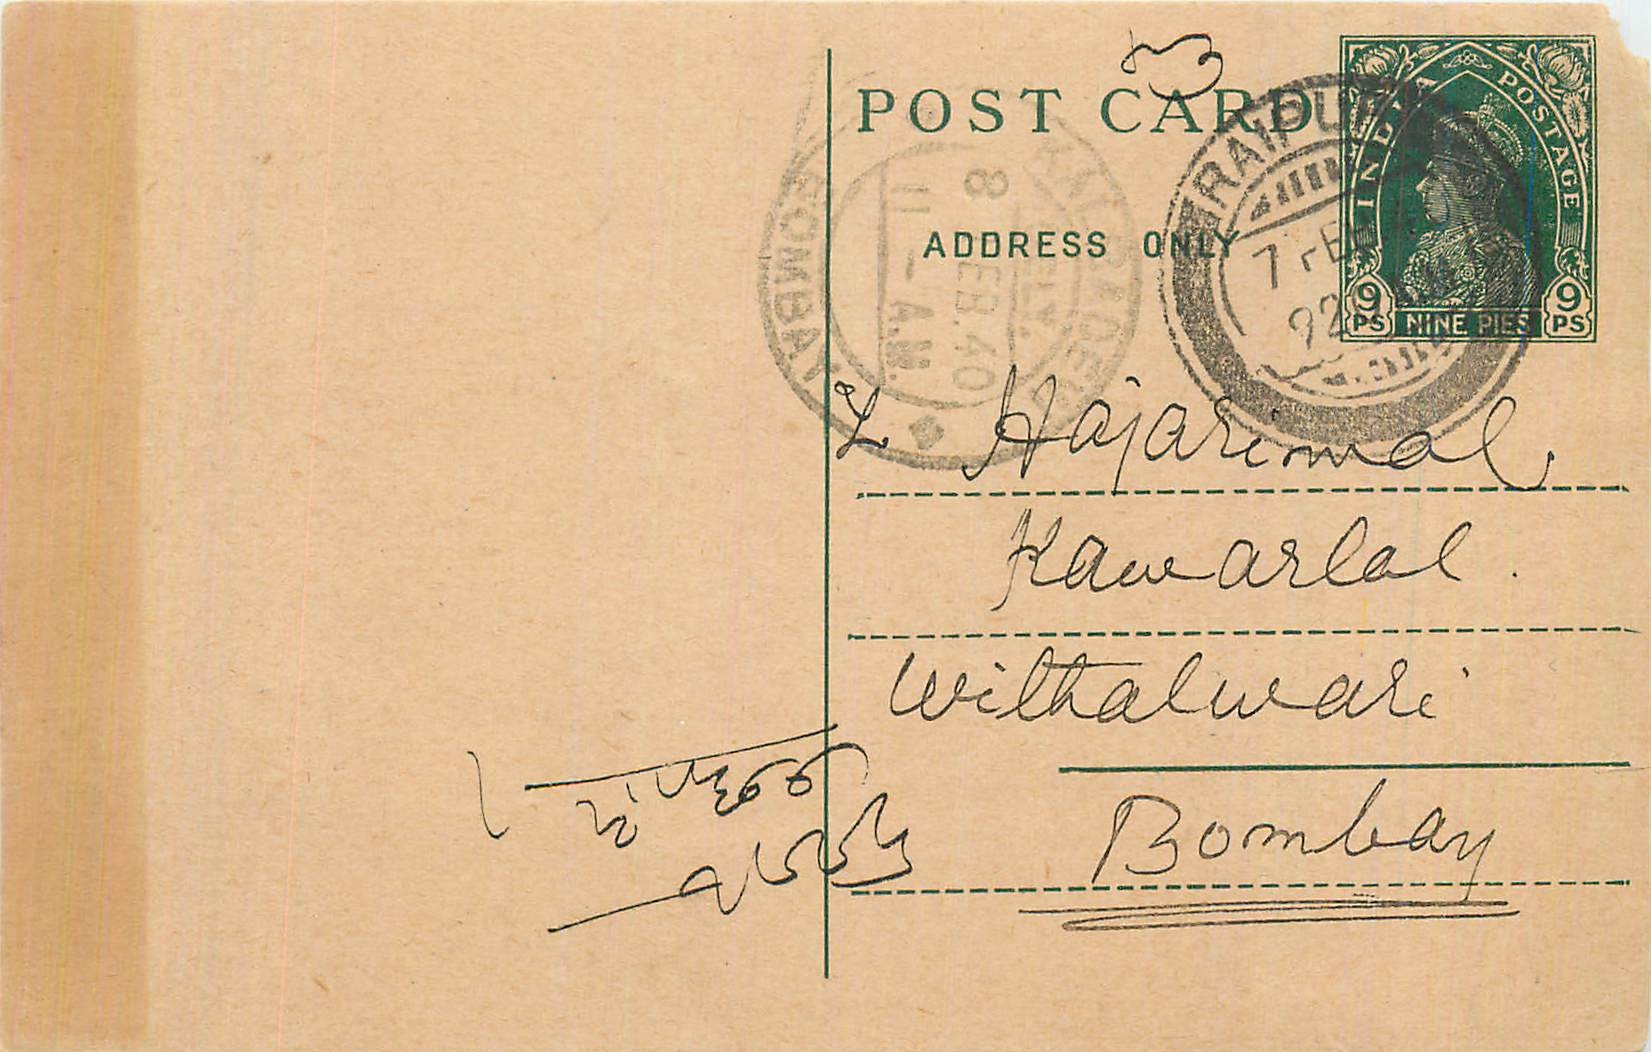 POST CARD
ADDRESS ONLY
INDIA POSTAGE
9 PS NINE PIES 9 PS
RAIPUR
7 FEB
KALBADEVI
DELY.
8 FEB. 40
11 - A.M.
BOMBAY
Hajarimal
Kawarlal
Withalwari
Bombay